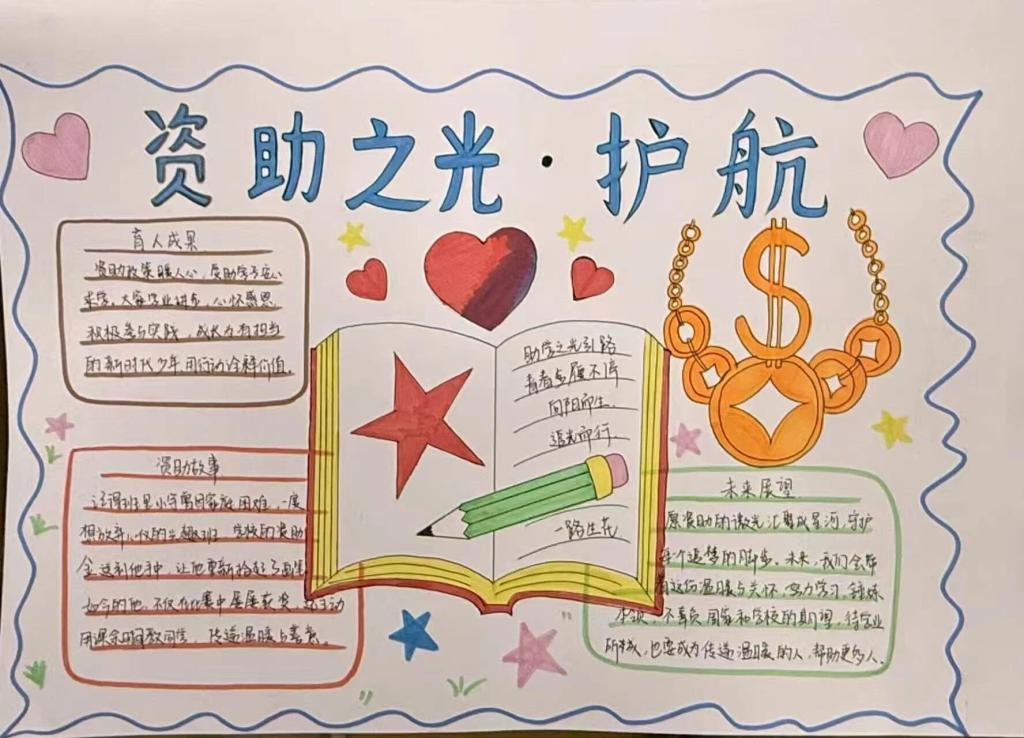 资助之光·护航
育人成果
资助政策暖人心，受助学子安心
求学。大家学业进步，心怀感恩
积极参与实践，成长为有担当
的新时代少年用行动诠释价值。
助学之光引路
青春步履不停
向阳而生
追光而行
一路生花
资助故事
还得班里小宇曾因家庭困难，一度
想放弃心仪的兴趣班，学校的资助
金送到他手中，让他重新拾起了画笔
如今的他，不仅在比赛中屡屡获奖，还主动
用课余时间教同学，传递温暖与善意。
未来展望
愿资助的微光汇聚成星河，守护
每个追梦的脚步。未来，我们会带
着这份温暖与关怀，努力学习，锤炼
本领，不辜负国家和学校的期望，待学业
所成，也要成为传递温暖的人，帮助更多人。